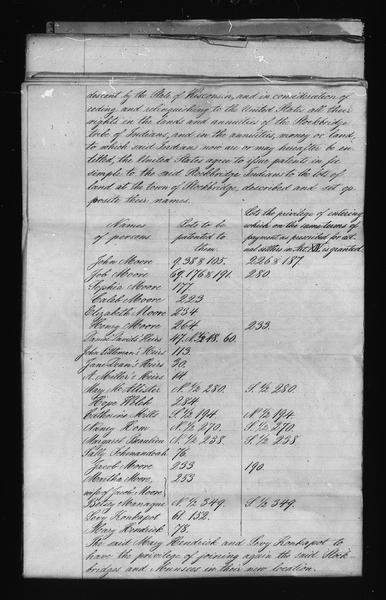 descent by the State of Wisconsin, and in consideration of
ceding and relinquishing to the United States all their
rights in the lands and annuities of the Stockbridge
tribe of Indians, and in the annuities, money or land,
to which said Indians now are or may hereafter be en-
titled, the United States agree to issue patents in fee
simple to the said Stockbridge Indians to the lots of
land at the town of Stockbridge, described and set op-
posite their names.
Names of persons. Lots to be patented to them. Lots the privilege of entering which on the same terms of payment as prescribed for actual settlers in Art. XIV is granted
John Moore 9. 38 & 105. 226 & 187
Job Moore 69. 176 & 191. 280.
Sophia Moore 177.
Caleb Moore 223
Elizabeth Moore 234
Henry Moore 264 233.
Davids Heirs 47. N.1/2 48. 60.
John Littleman's Heirs 113.
Jane Dean's Heirs 30.
A. Miller's Heirs 14.
Mary McAllister N.1/2 280. S.1/2 280.
Hope Welch 284
Catharine Mills S.1/2 194. N.1/2 194.
Nancy Hom N.1/2 270. S.1/2 270.
Margaret Beaulieu N.1/2 238. S.1/2 238
Sally Shenandoah 76.
Jacob Moore 233 190.
Martha Moore, 253
wife of Jacob Moore
Betsey Manague N.1/2 349. S.1/2 349.
Levy Konkapot 61. 152.
Mary Hendrick 78.
The said Mary Hendrick and Levy Konkapot to
have the privilege of joining again the said Stock-
bridges and Munsees in their new location.